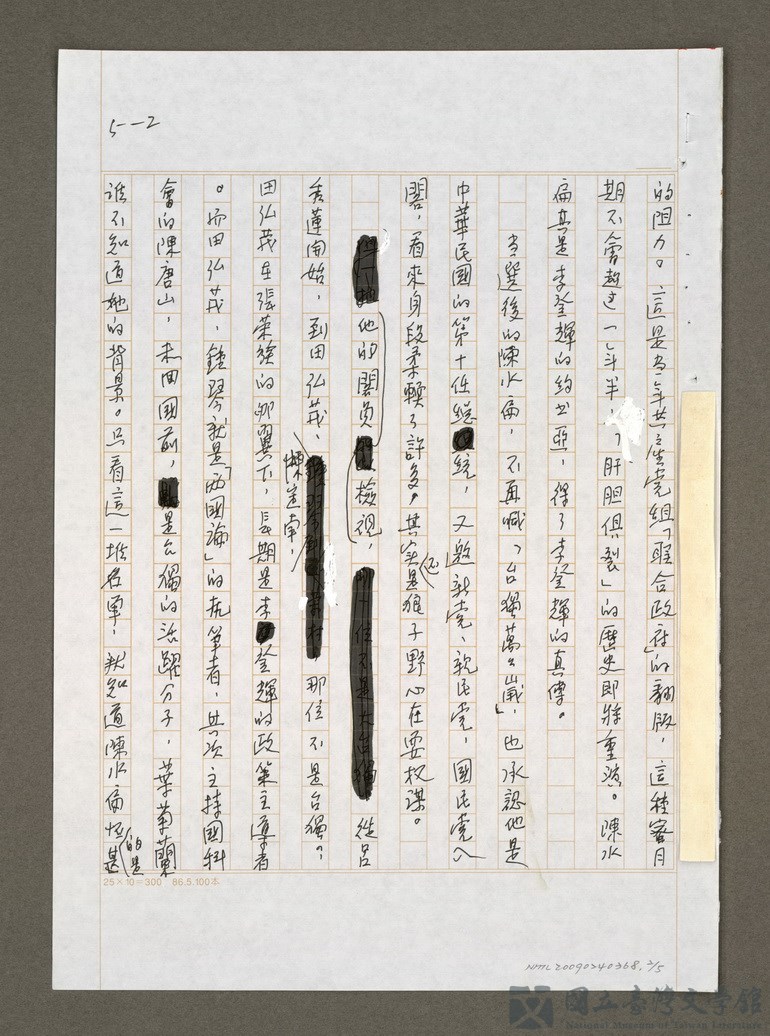 5-2
的阻力。這是當年共產党組「聯合政府」的翻版，這種蜜月
期不會超过一年半，「肝胆俱裂」的歷史即將重演。陳水
扁真是李登輝的約书亞，得了李登輝的真傳。
当選後的陳水扁，不再喊「台獨萬萬歲」，也承認他是
中華民國的第十任總統，又邀新党、親民党、國民党入
閣，看來身段柔軟了許多。其实还是狼子野心在耍权謀。
他的閣員檢視，從呂
秀蓮開始，到田弘茂、陳定南，那位不是台獨？
田弘茂在張榮發的卵翼下，長期是李登輝的政策主導者
。而田弘茂、鍾琴就是「两國論」的 筆者，其次主持國科
會的陳唐山，未回國前，是台獨的活躍分子，葉菊蘭
誰不知道她的背景。只看這一堆名單，就知道陳水扁 的是甚
25×10=300 86.5.100本
NMTL20090240368, 2/5
國立臺灣文學館
National Museum of Taiwan Literature